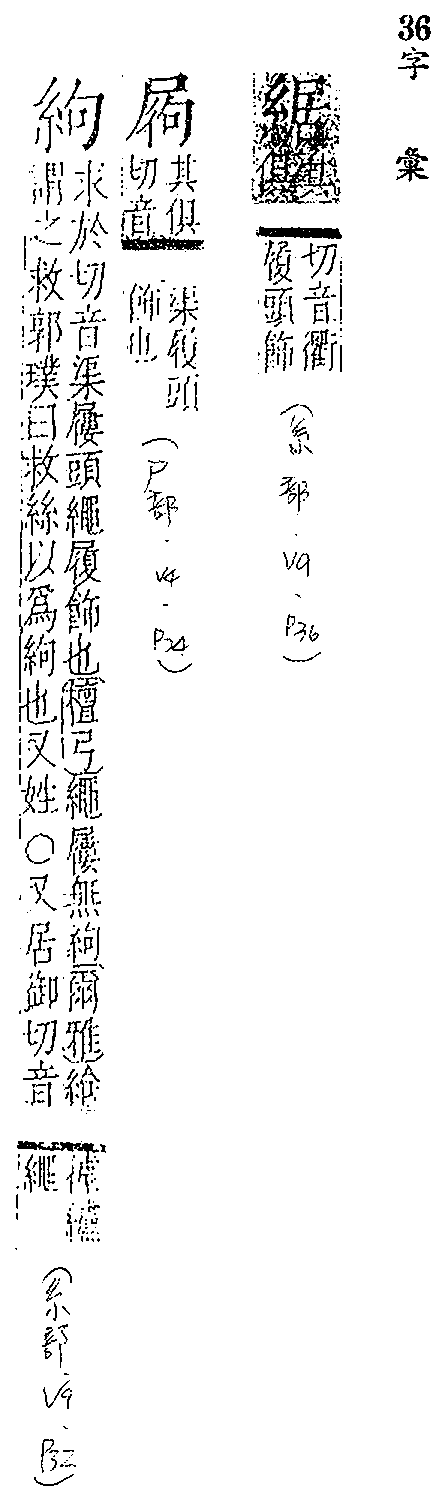 36字彙
切音衢
履頭飾
(糸部.V9.P36)
其俱
切音
渠履頭
飾也
(尸部.V4.P34)
絇
求於切音渠屨頭繩履飾也檀弓繩屨無絇爾雅
謂之救郭璞曰救絲以爲絇也又姓○又居御切音
纑
繩
(糸部.V9.P32)